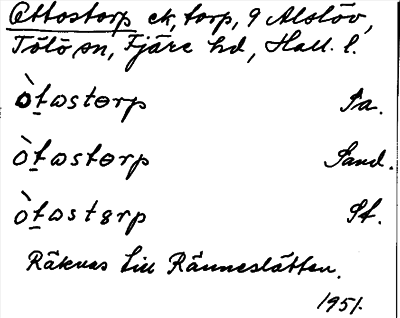 Ottostorp ek, torp, 9 Alslöv,
Tölö sn, Fjäre hd, Hall. l.
òt̲ɷstɵrp Fa.
òt̲ɷstɵrp Sand.
òt̲ɷstɞrp St.
Räknas till Ränneslätten.
1951.